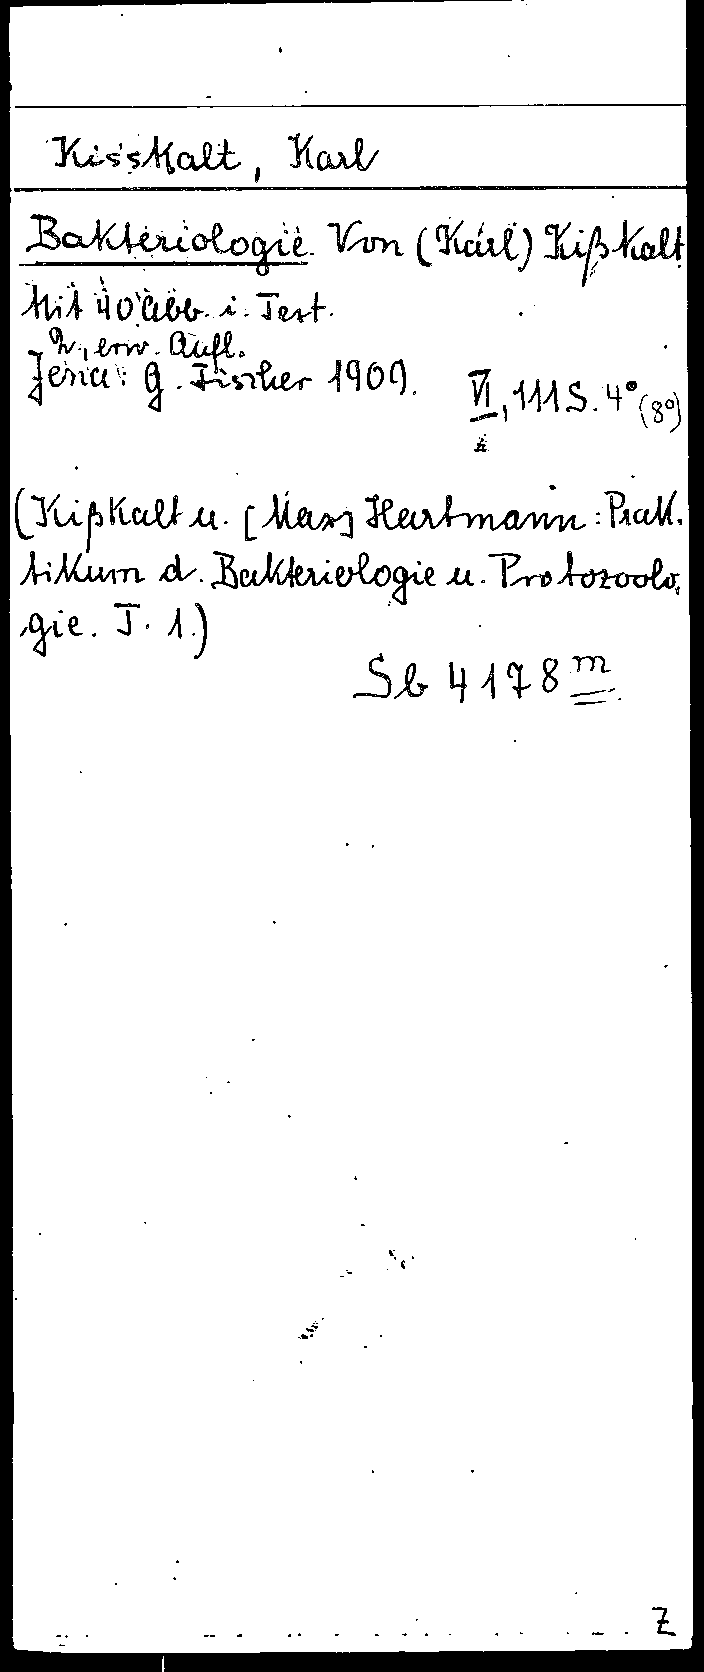 Kisskalt, Karl
Bakteriologie. Von (Karl) Kißkalt
Mit 40 Abb. i. Text.
2., erw. Aufl.
Jena: G. Fischer 1909. VI, 111 S. 4° (8°)
(Kißkalt u. [Max] Hartmann: Prak-
tikum d. Bakteriologie u. Protozoolo-
gie. T. 1.)
Sb 4178 m
Z